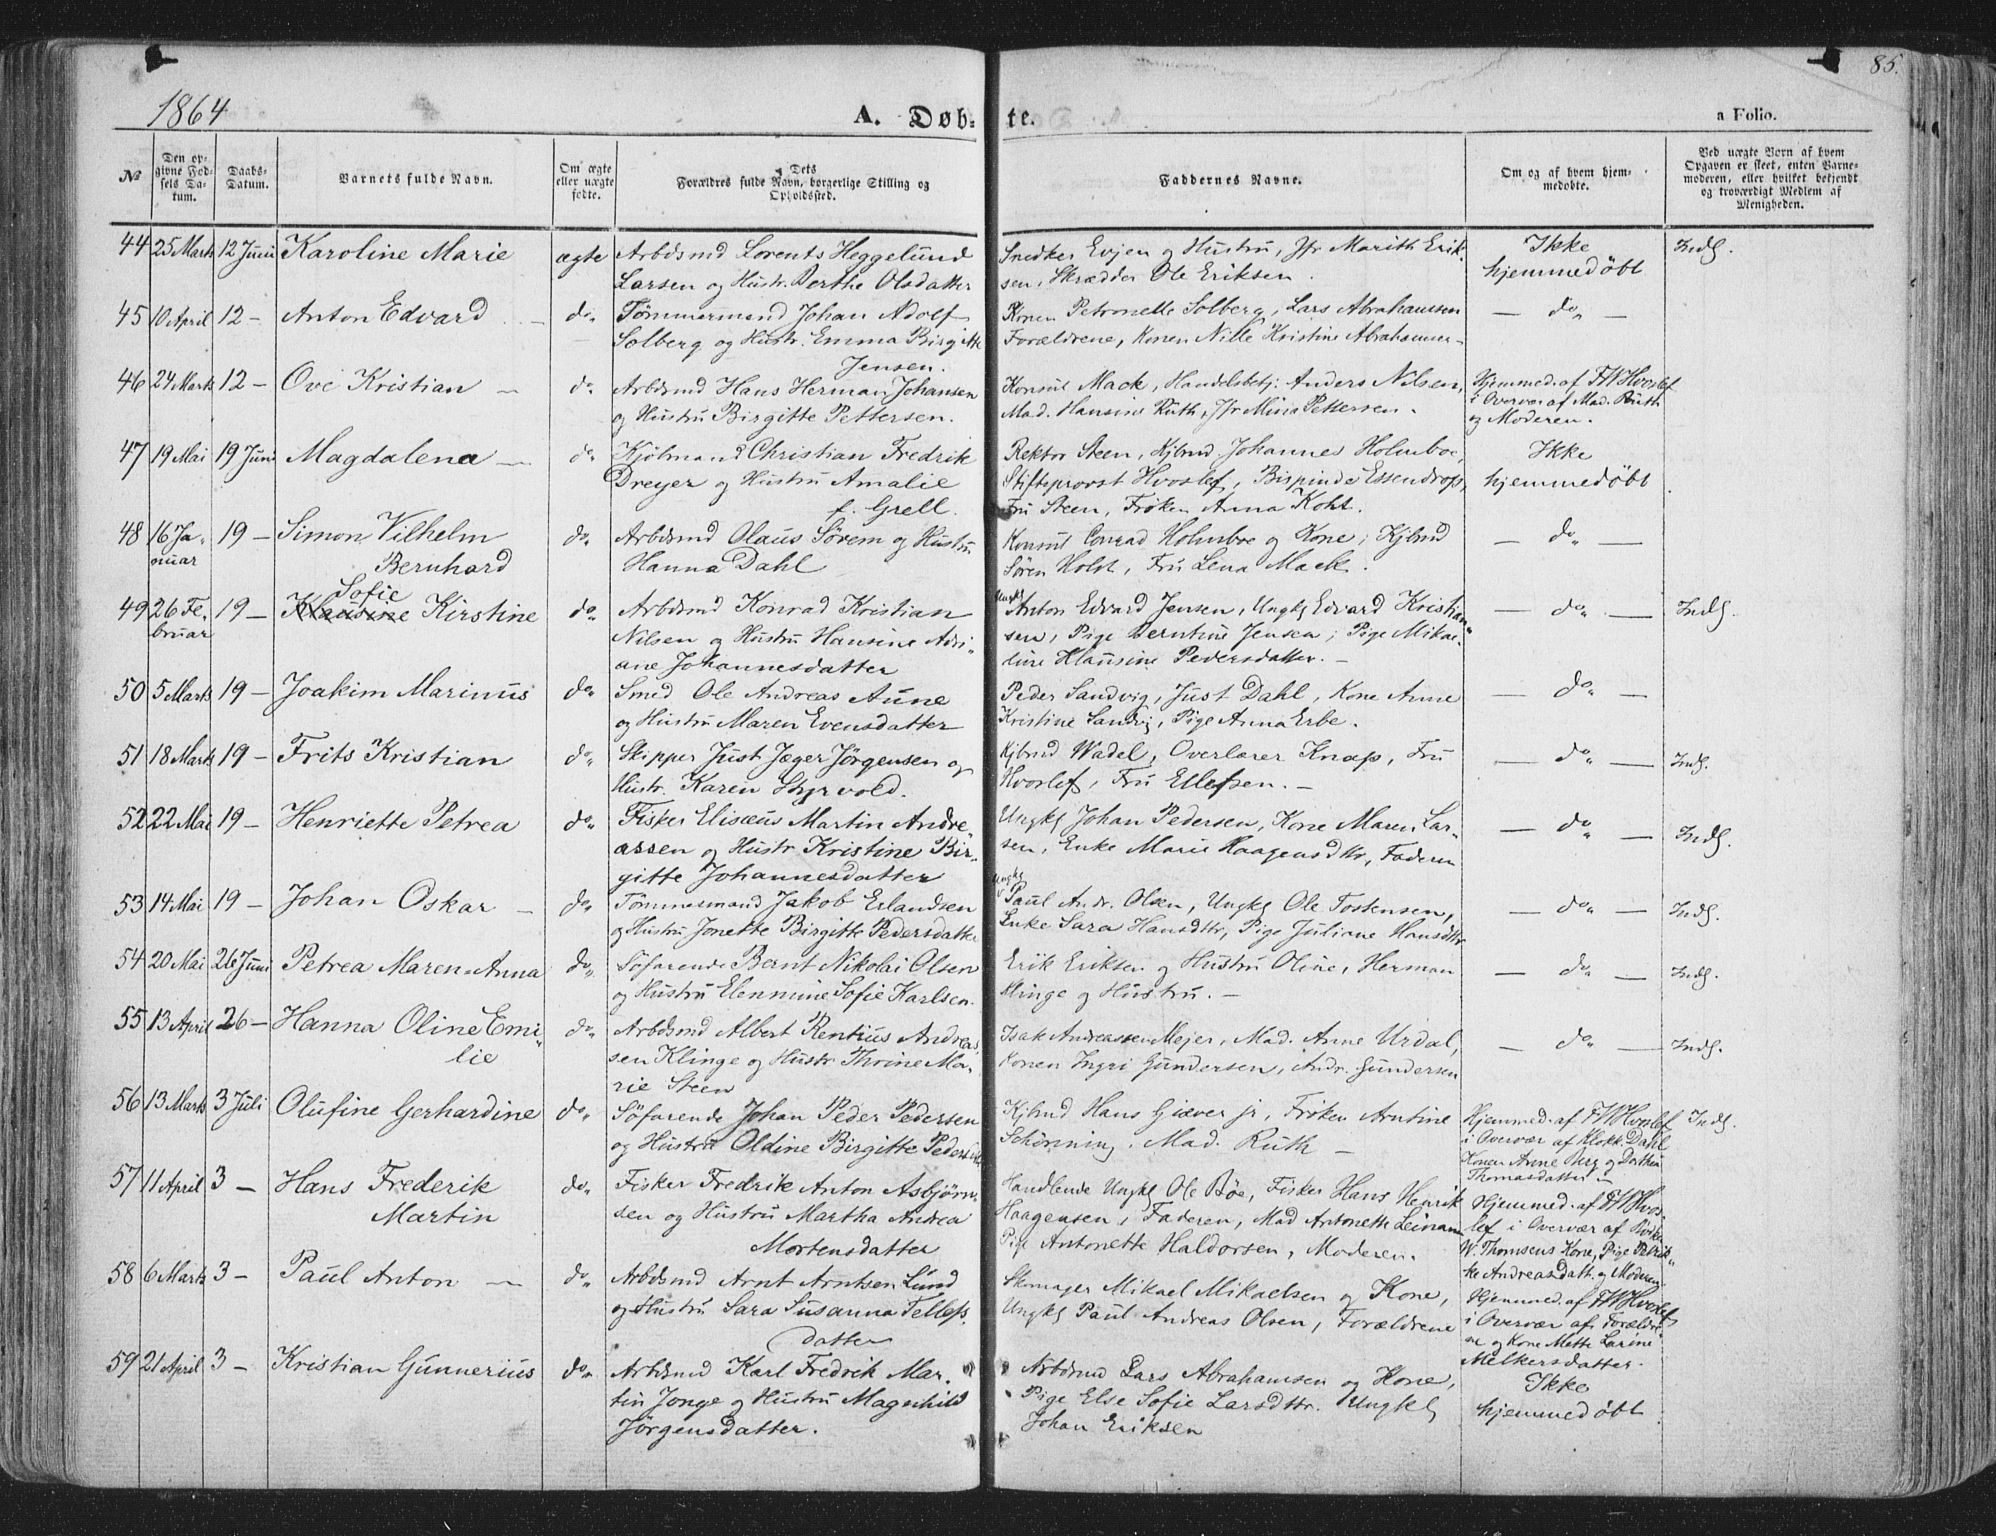 1864
A. Døb-
te.
a Folio.
85.
№
Den op-
givne Fød-
sels Da-
tum.
Daabs-
Datum.
Barnets fulde Navn.
Om ægte
eller uægte
fødte.
Dets
Forældres fulde Navn, borgerlige Stilling og
Opholdssted.
Faddernes Navne.
Om og af hvem hjem-
medøbte.
Ved uægte Børn af hvem
Opgaven er skeet, enten Barne-
moderen, eller hvilket bekjendt
og troværdigt Medlem af
Menigheden.
44 25 Marts 12 Juni Karoline Marie ægte Arbdsmd Lorents Heggelund Snedker Evjen og Hustru, Jfr Marith Erik- Ikke Indg.
Larsen og Hustr. Berthe Olsdatter sen, Skrædder Ole Eriksen. hjemmedøbt
45 10 April 12 - Anton Edvard - do. Tømmermand Johan Adolf Konen Petronelle Solberg, Lars Abrahamsen - do. -
Solberg og Hustr. Emma Birgitte Forældrene, Konen Nille Kristine Abrahamsen -
Jensen.
46 24 Marts 12 - Ove Kristian - do. Arbdsmd Hans Herman Johansen Konsul Mack, Handelsbetj. Anders Nilsen, Hjemmed. af FW Hvoslef
og Hustru Birgitte Pettersen. Mad. Hansine Ruth, Jfr Mina Pettersen. i Overvær af Mad. Ruth
og Moderen.
47 19 Mai 19 Juni Magdalena - do. Kjøbmand Christian Fredrik Rektor Steen, Kjbmd. Johannes Holmboe, Ikke
Dreyer og Hustru Amalie Stiftsprovst Hvoslef, Bispinde Essendrop, hjemmedøbt
f. Grell. Fru Steen, Frøken Anna Koht.
48 16 Ja- 19 - Simon Vilhelm do. Arbdsmd Olaus Sørem og Hustru Konsul Conrad Holmboe og Kone, Kjbmd - do. -
nuar Bernhard Hanna Dahl Søren Holst, Fru Lena Mack.
Sofie Ungkl
49 26 Fe- 19 - Klausine Kirstine do. Arbdsmd Konrad Kristian Anton Edvard Jensen, Ungkl Edvard Kristian- - do. - Indg.
bruar Nilsen og Hustru Hansine Adri- sen, Pige Berntine Jensen, Pige Mikae-
ane Johannesdatter line Klausine Pedersdatter. -
50 5 Marts 19 - Joakim Marinus do. Smed Ole Andreas Aune Peder Sandvig, Just Dahl, Kone Anne - do. -
og Hustru Maren Evensdatter Kristine Sandvig, Pige Anna Erbe.
51 18 Marts 19 - Frits Kristian do. Skipper Just Jæger Jørgensen og Kjbmd Wadel, Overlærer Knap, Fru - do. - Indg.
Hustr. Karen Styrvold. Hvoslef, Fru Ellefsen. -
52 22 Mai 19 - Henriette Petrea do. Fisker Elisæus Martin Andre- Ungkl Johan Pedersen, Kone Maren Lar- - do. - Indg.
assen og Hustr Kristine Bir- sen, Enke Marie Haagensdtr, Faderen
gitte Johannesdatter Ungkl
53 14 Mai 19 - Johan Oskar - do. Tømmermand Jakob Erlandsen Paul Andr. Olsen, Ungkl Ole Tostensen, - do. - Indg.
og Hustru Jonette Birgitte Pedersdatter Enke Sara Hansdtr, Pige Juliane Hansdtr
54 20 Mai 26 Juni Petrea Maren Anna do. Søfarende Bernt Nikolai Olsen Erik Eriksen og Hustru Oline, Herman - do. - Indg.
og Hustru Elenmine Sofie Karlsen. Klinge og Hustru. -
55 13 April 26 - Hanna Oline Emi- do. Arbdsmd Albert Rentius Andreas- Isak Andreassen Mejer, Mad. Anne Urdal, - do. - Indg.
lie sen Klinge og Hustr Thrine Ma- Konen Ingri Gundersen, Andr. Gundersen
rie Steen
56 13 Marts 3 Juli Olufine Gerhardine do. Søfarende Johan Peder Pedersen Kjbmd Hans Giæver jr, Frøken Arntine Hjemmed. af FW Hvoslef Indg.
og Hustru Oldine Birgitte Pedersdtr Schönning, Mad. Ruth - i Overvær af Klokk. Dahl
Konen Anne Berg og Dorthea
Thomasdatter -
57 11 April 3 - Hans Frederik do. Fisker Fredrik Anton Asbjørn- Handlende Ungkl Ole Bøe, Fisker Hans Henrik Hjemmed. af FW Hvos-
Martin sen og Hustru Martha Andrea Haagensen, Faderen, Mad Antonette Leinan lef i Overvær af Bødker
Mortensdatter Pige Antonette Haldorsen, Moderen. W. Thomsens Kone, Pige Petrik-
ke Andreasdatt. og Moderen.
58 6 Marts 3 - Paul Anton - do. Arbdsmd Arnt Arntsen Lund Skomager Mikael Mikaelsen og Kone, Hjemmed. af FW Hvoslef
og Hustru Sara Susanna Tellefs- Ungkl Paul Andreas Olsen, Forældrene i Overvær af Forældre-
datter ne og Kone Mette Larine
Melkersdatter.
59 21 April 3 - Kristian Gunnerius do. Arbdsmd Karl Fredrik Mar- Arbdsmd Lars Abrahamsen og Kone, Ikke
tin Jonge og Hustru Magnhild Pige Else Sofie Larsdtr. Ungkl hjemmedøbt
Jørgensdatter. Johan Eriksen